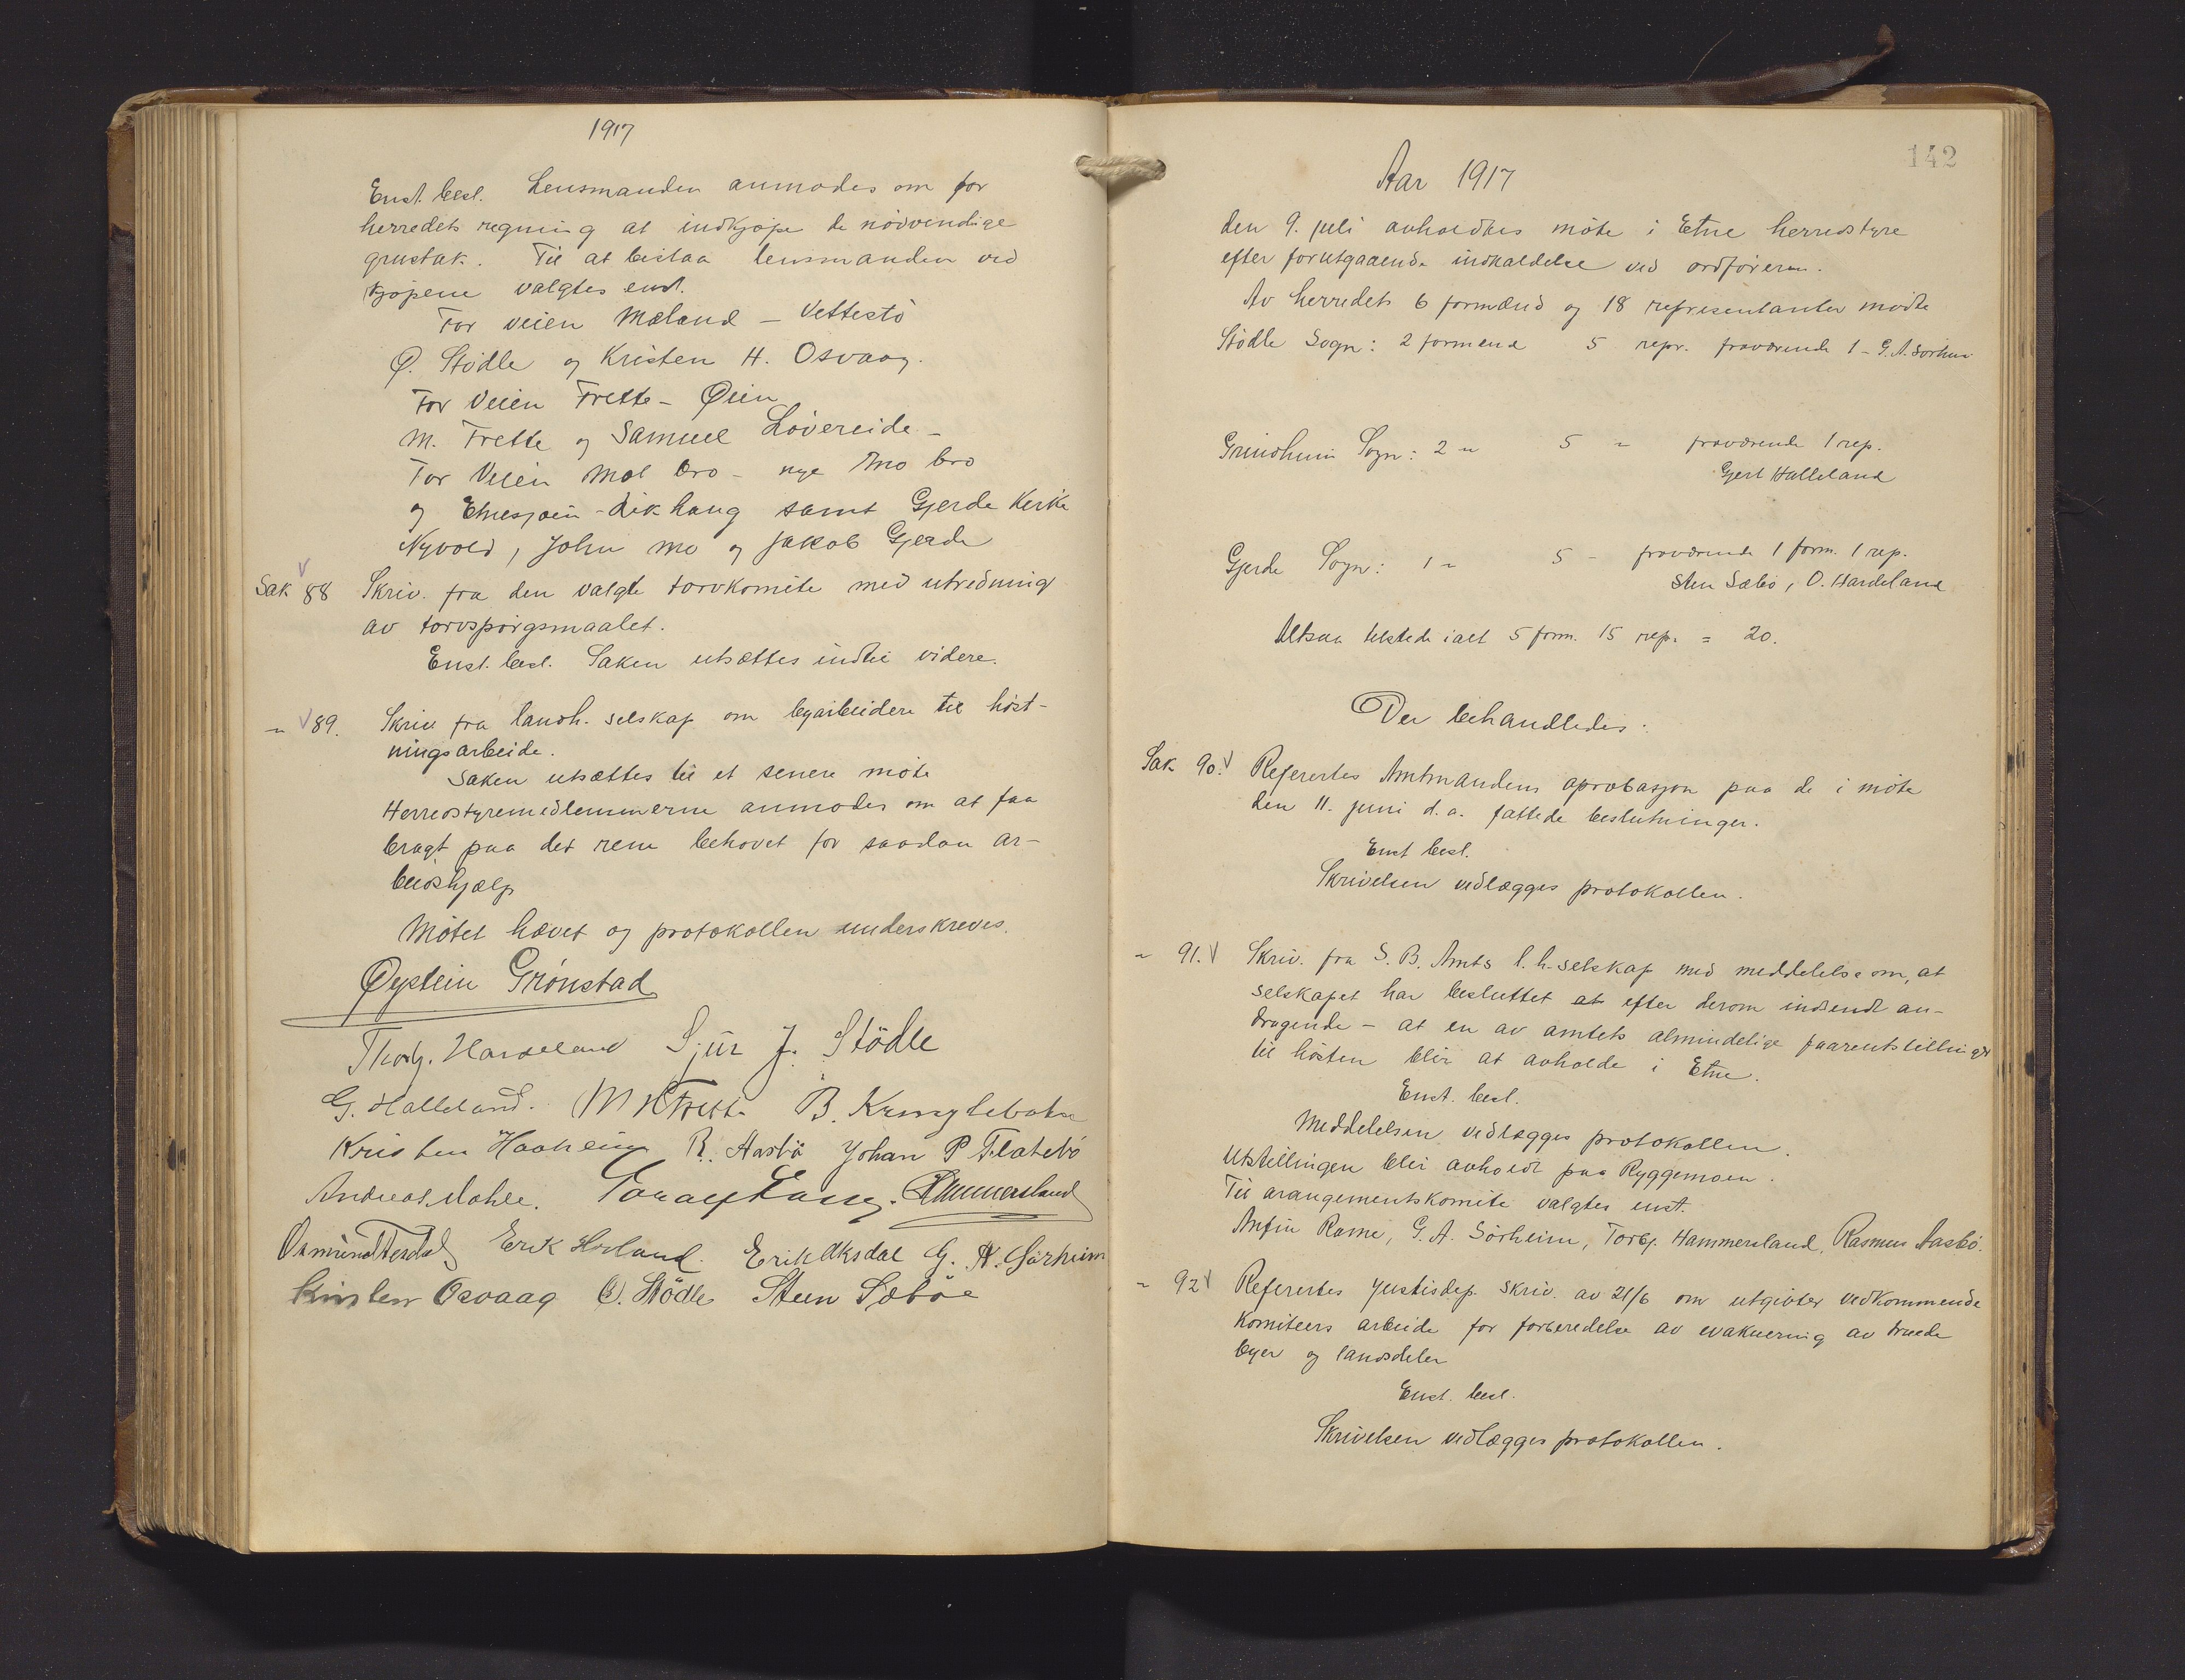 1917
Enst. besl. Lensmanden anmodes om for
herredets regning at indkjøpe de nödvendige
grustak. Til at bistaa lensmanden ved
kjøpene valgtes enst.
For veien Mæland – Vettestö
Ø. Stödle og Kristen H. Osvaag.
For Veien Frette – Øien
M. Frette og Samuel Lövereide –
For Veien Mol bro – nye Mo bro
og Etnesjøen – Lækhaug samt Gjerde Kirke
Nyvold, John Mo og Jakob Gjerde
Sak 88 Skriv. fra den valgte torvkomite med utredning
av torvspörgsmaalet.
Enst. besl. Saken utsættes indtil videre.
" 89. Skriv fra landh. selskap om byarbeidere til höst-
ningsarbeide.
Saken utsættes til et senere möte
Herredstyremedlemmerne anmodes om at faa
bragt paa det rene behovet for saadan ar-
beidshjælp
Mötet hævet og protokollen underskreves.
Øystein Grönstad
Thorbj. Hardeland Sjur J. Stödle
G. Halleland. M H Frette B. Kringlebotn
Kristen Haaheim R. Aasbö Johan P Flatebö
Andreas Mæhle. Hammersland
Osmund Erik Hovland. Erik Aksdal G. A. Sörheim
Kristen Osvaag Ø. Stödle Steen Sæböe
142
Aar 1917
den 9. juli avholdtes möte i Etne herredstyre
efter forutgaaende indkaldelse ved ordföreren.
Av herredets 6 formænd og 18 representanter mödte
Stödle Sogn: 2 formend 5 repr. fraværende 1 – G. A. Sörheim
Grindheim Sogn: 2 " 5 " fraværende 1 rep.
Gjert Halleland
Gjerde Sogn: 1 " 5 – fraværende 1 form. 1 rep.
Sten Sæbö, O. Hardeland
Altsaa tilstede ialt 5 form. 15 rep. = 20.
Der behandledes:
Sak 90. Referertes Amtmandens aprobasjon paa de i möte
den 11. juni d.a. fattede beslutninger.
Enst besl.
Skrivelsen vedlægges protokollen.
" 91. Skriv. fra S. B. Amts l.h.selskap med meddelelse om, at
selskapet har besluttet at efter derom indsendt an-
dragende – at en av amtets almindelige faareutstillinger
til hösten blir at avholde i Etne.
Enst. besl.
Meddelelsen vedlægges protokollen.
Utstillingen blir avholdt paa Ryggemoen.
Til arangementskomite valgtes enst.
Anfin Rame, G. A. Sörheim, Torbj. Hammersland, Rasmus Aasbö.
" 92 Referertes Justisdep. skriv. av 21/6 om utgivter vedkommende
Komiteers arbeide for forberedelse av evakuering av truede
byer og landsdeler
Enst. besl.
Skrivelsen vedlægges protokollen.